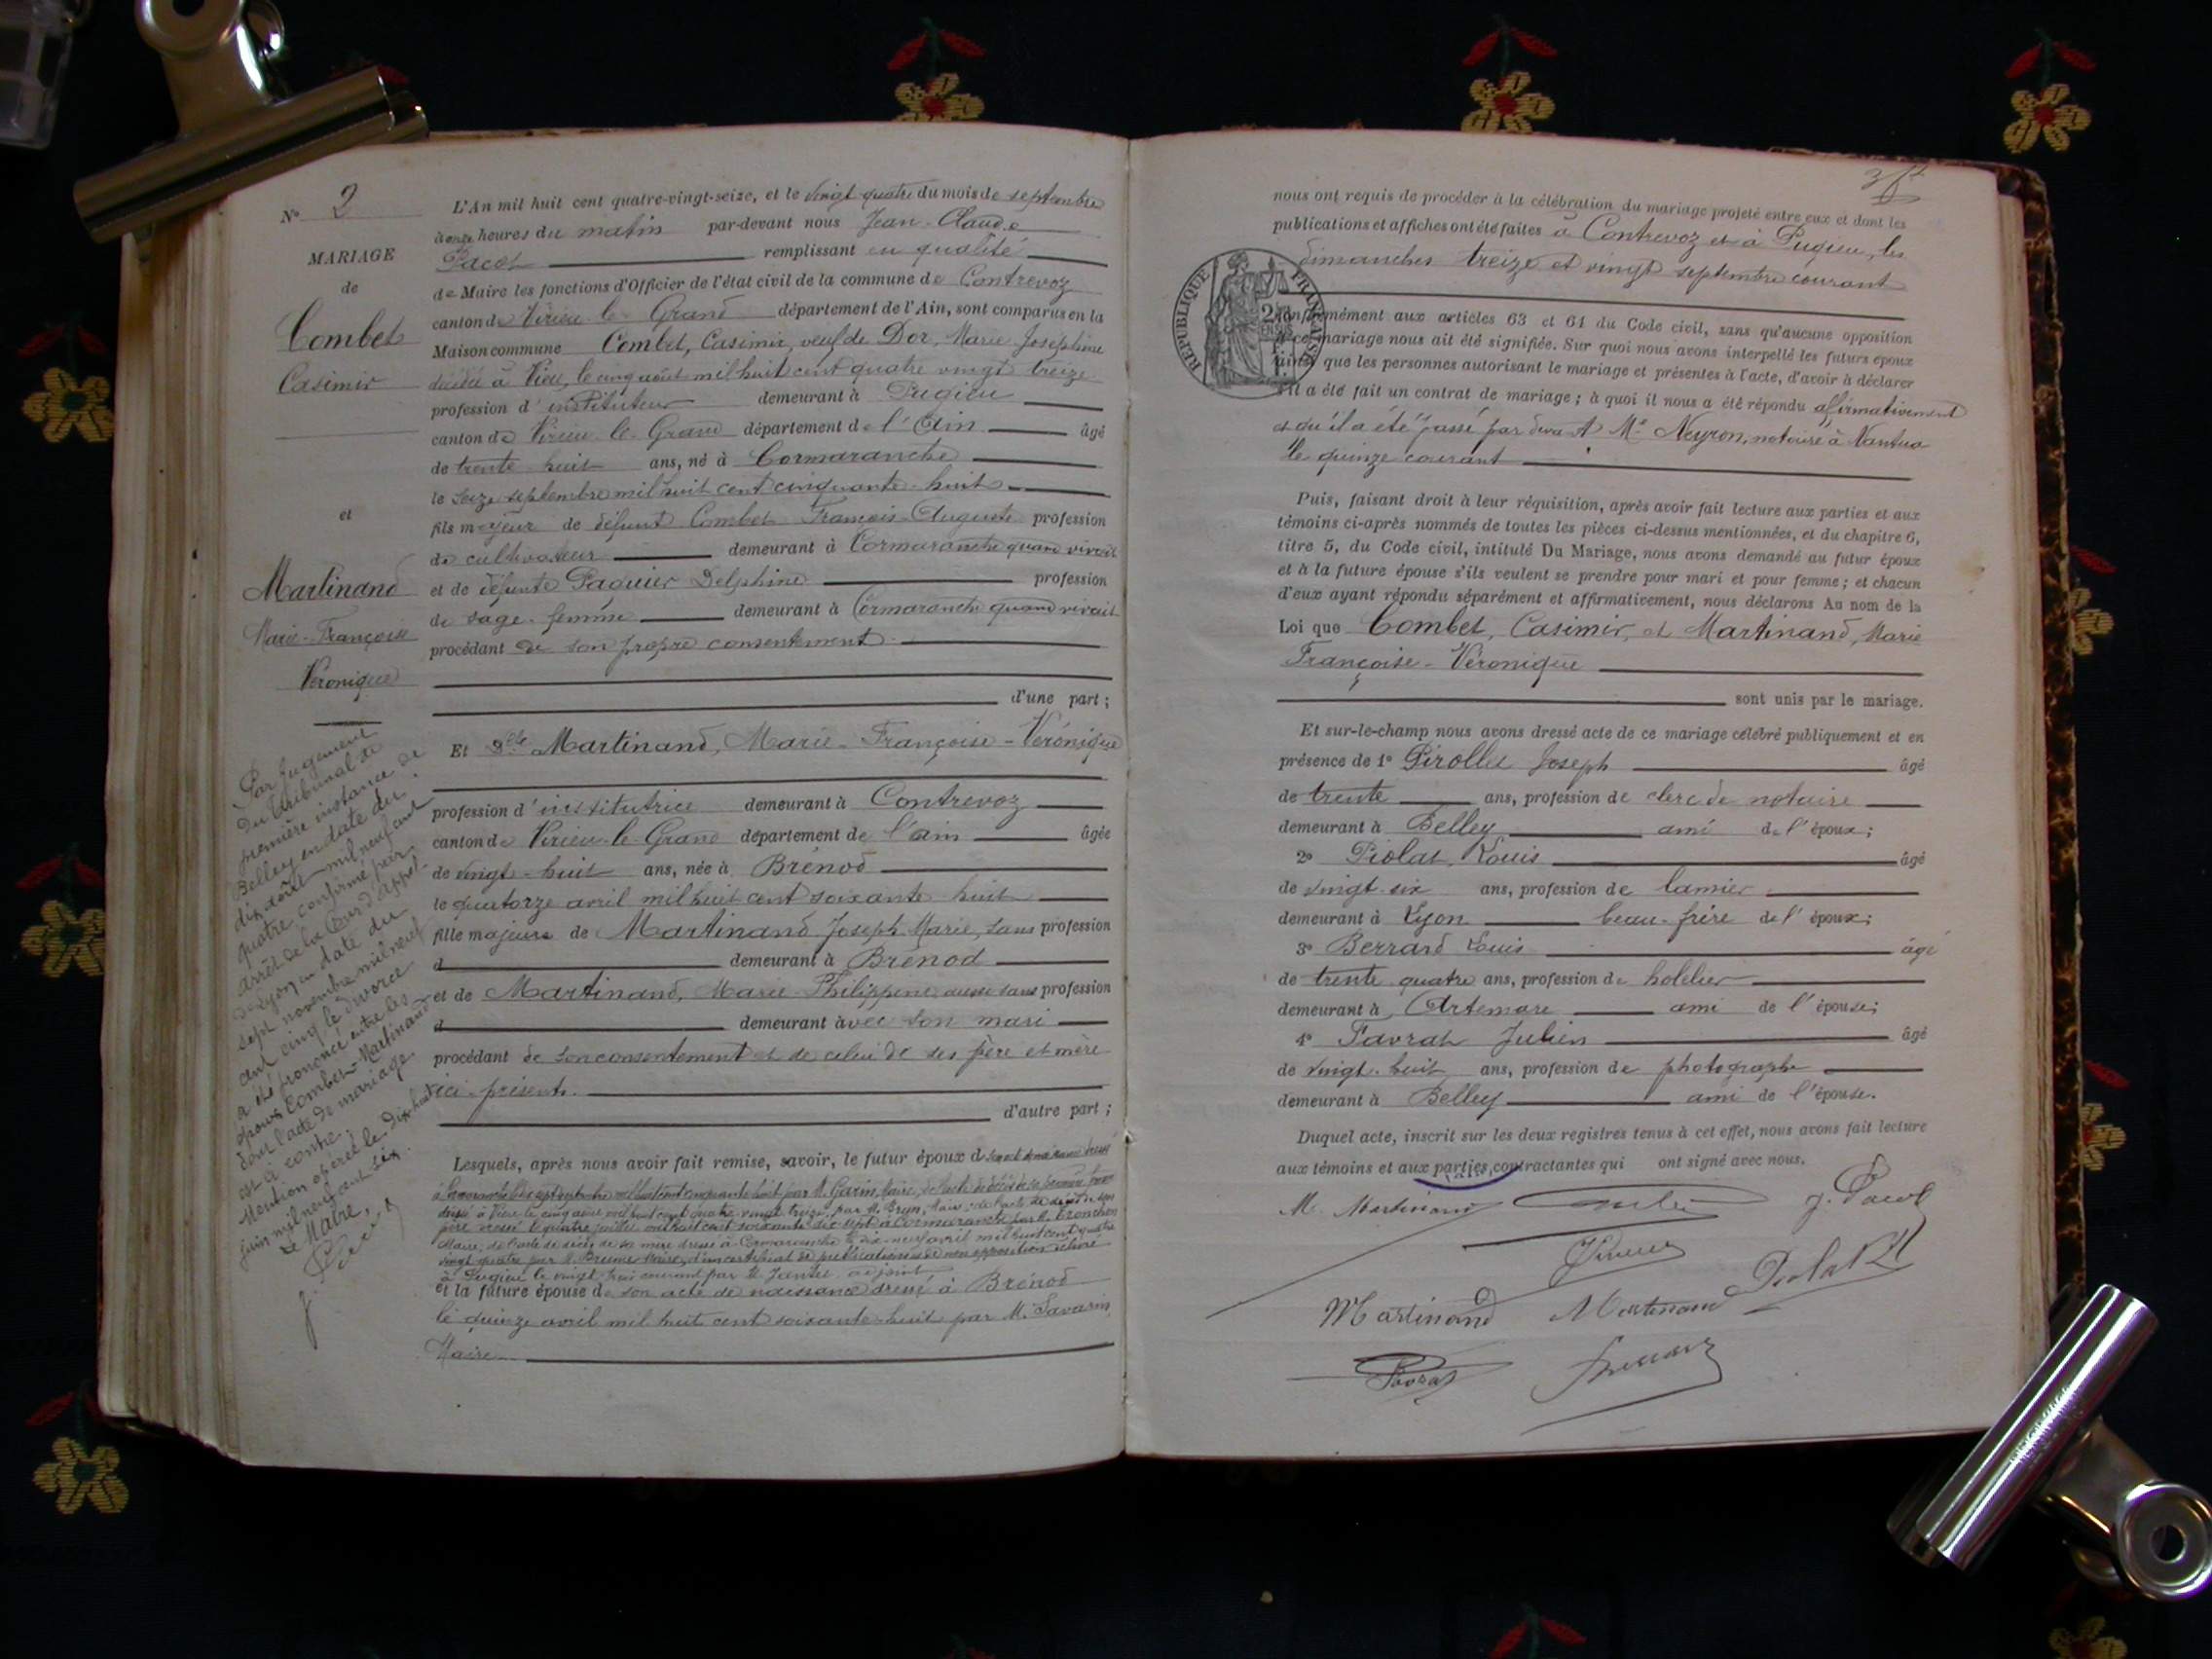 N° 2
MARIAGE
de
Combet
Casimir
et
Martinand
Marie-Françoise
Véronique
Par jugement
du tribunal de
première instance de
Belley en date du
dix août mil neuf cent
quatre confirmé par
arrêt de la Cour d'appel
de Lyon en date du
sept novembre mil neuf
cent cinq le divorce
a été prononcé entre les
époux Combet-Martinand
dont l'acte de mariage
est ci contre.
Mention opérée le dix huit
juin mil neuf cent six.
Le Maire,
L'An mil huit cent quatre-vingt-seize, et le vingt quatre du mois de septembre
à onze heures du matin par-devant nous Jean-Claude
Pacot remplissant en qualité
de Maire les fonctions d'Officier de l'état civil de la commune de Contrevoz
canton de Virieu le Grand département de l'Ain, sont comparus en la
Maison commune Combet, Casimir, veuf de Dor, Marie Joséphine
décédée à Vieu, le cinq août mil huit cent quatre vingt treize
profession d'instituteur demeurant à Pugieu
canton de Virieu-le-Grand département de l'Ain âgé
de trente huit ans, né à Cormaranche
le seize septembre mil huit cent cinquante-huit
fils majeur de défunt Combet François Auguste profession
de cultivateur demeurant à Cormaranche quand vivait
et de défunte Paquier Delphine profession
de sage-femme demeurant à Cormaranche quand vivait
procédant de son propre consentement
d'une part ;
Et Dlle Martinand, Marie-Françoise-Véronique
profession d'institutrice demeurant à Contrevoz
canton de Virieu-le-Grand département de l'ain âgée
de vingt-huit ans, née à Brénod
le quatorze avril mil huit cent soixante huit
fille majeure de Martinand Joseph Marie, sans profession
d demeurant à Brénod
et de Martinand, Marie Philippine, aussi sans profession
d demeurant avec son mari
procédant de son consentement et de celui de ses père et mère
ici présents.
d'autre part ;
Lesquels, après nous avoir fait remise, savoir, le futur époux de son acte de naissance dressé
à Cormaranche le dix sept septembre mil huit cent cinquante huit par M. Gorin, Maire, de l'acte de décès de sa première femme
dressé à Vieu le cinq août mil huit cent quatre vingt treize par M. Brun, Maire, de l'acte de décès de son
père dressé le quatre juillet mil huit cent soixante dix sept à Cormaranche par M. Tronchon
Maire, de l'acte de décès de sa mère dressé à Cormaranche le dix-neuf avril mil huit cent quatre
vingt quatre par M. Maire, d'un certificat de publications et de non opposition délivré
à Pugieu le vingt trois courant par M. Jantet adjoint
et la future épouse de son acte de naissance dressé à Brénod
le quinze avril mil huit cent soixante-huit par M. Savarin,
Maire
nous ont requis de procéder à la célébration du mariage projeté entre eux et dont les
publications et affiches ont été faites à Contrevoz et à Pugieu, les
dimanches treize et vingt septembre courant
RÉPUBLIQUE FRANÇAISE
conformément aux articles 63 et 64 du Code civil, sans qu'aucune opposition
à ce mariage nous ait été signifiée. Sur quoi nous avons interpellé les futurs époux
ainsi que les personnes autorisant le mariage et présentes à l'acte, d'avoir à déclarer
s'il a été fait un contrat de mariage ; à quoi il nous a été répondu affirmativement
et qu'il a été passé par devant Me Neyron, notaire à Nantua
le quinze courant
Puis, faisant droit à leur réquisition, après avoir fait lecture aux parties et aux
témoins ci-après nommés de toutes les pièces ci-dessus mentionnées, et du chapitre 6,
titre 5, du Code civil, intitulé Du Mariage, nous avons demandé au futur époux
et à la future épouse s'ils veulent se prendre pour mari et pour femme ; et chacun
d'eux ayant répondu séparément et affirmativement, nous déclarons Au nom de la
Loi que Combet, Casimir, et Martinand, Marie
Françoise-Véronique
sont unis par le mariage.
Et sur-le-champ nous avons dressé acte de ce mariage célébré publiquement et en
présence de 1° Pirollet Joseph âgé
de trente ans, profession de clerc de notaire
demeurant à Belley ami de l'époux ;
2° Piolat, Louis âgé
de vingt-six ans, profession de lamier
demeurant à Lyon beau-frère de l'époux ;
3° Berrard Louis âgé
de trente quatre ans, profession de hôtelier
demeurant à Artemare ami de l'épouse ;
4° Favrat Julien âgé
de vingt-huit ans, profession de photographe
demeurant à Belley ami de l'épouse.
Duquel acte, inscrit sur les deux registres tenus à cet effet, nous avons fait lecture
aux témoins et aux parties contractantes qui ont signé avec nous.
M. Martinand Combet J. Pacot
Martinand Martinand Piolat
Favrat Berrard